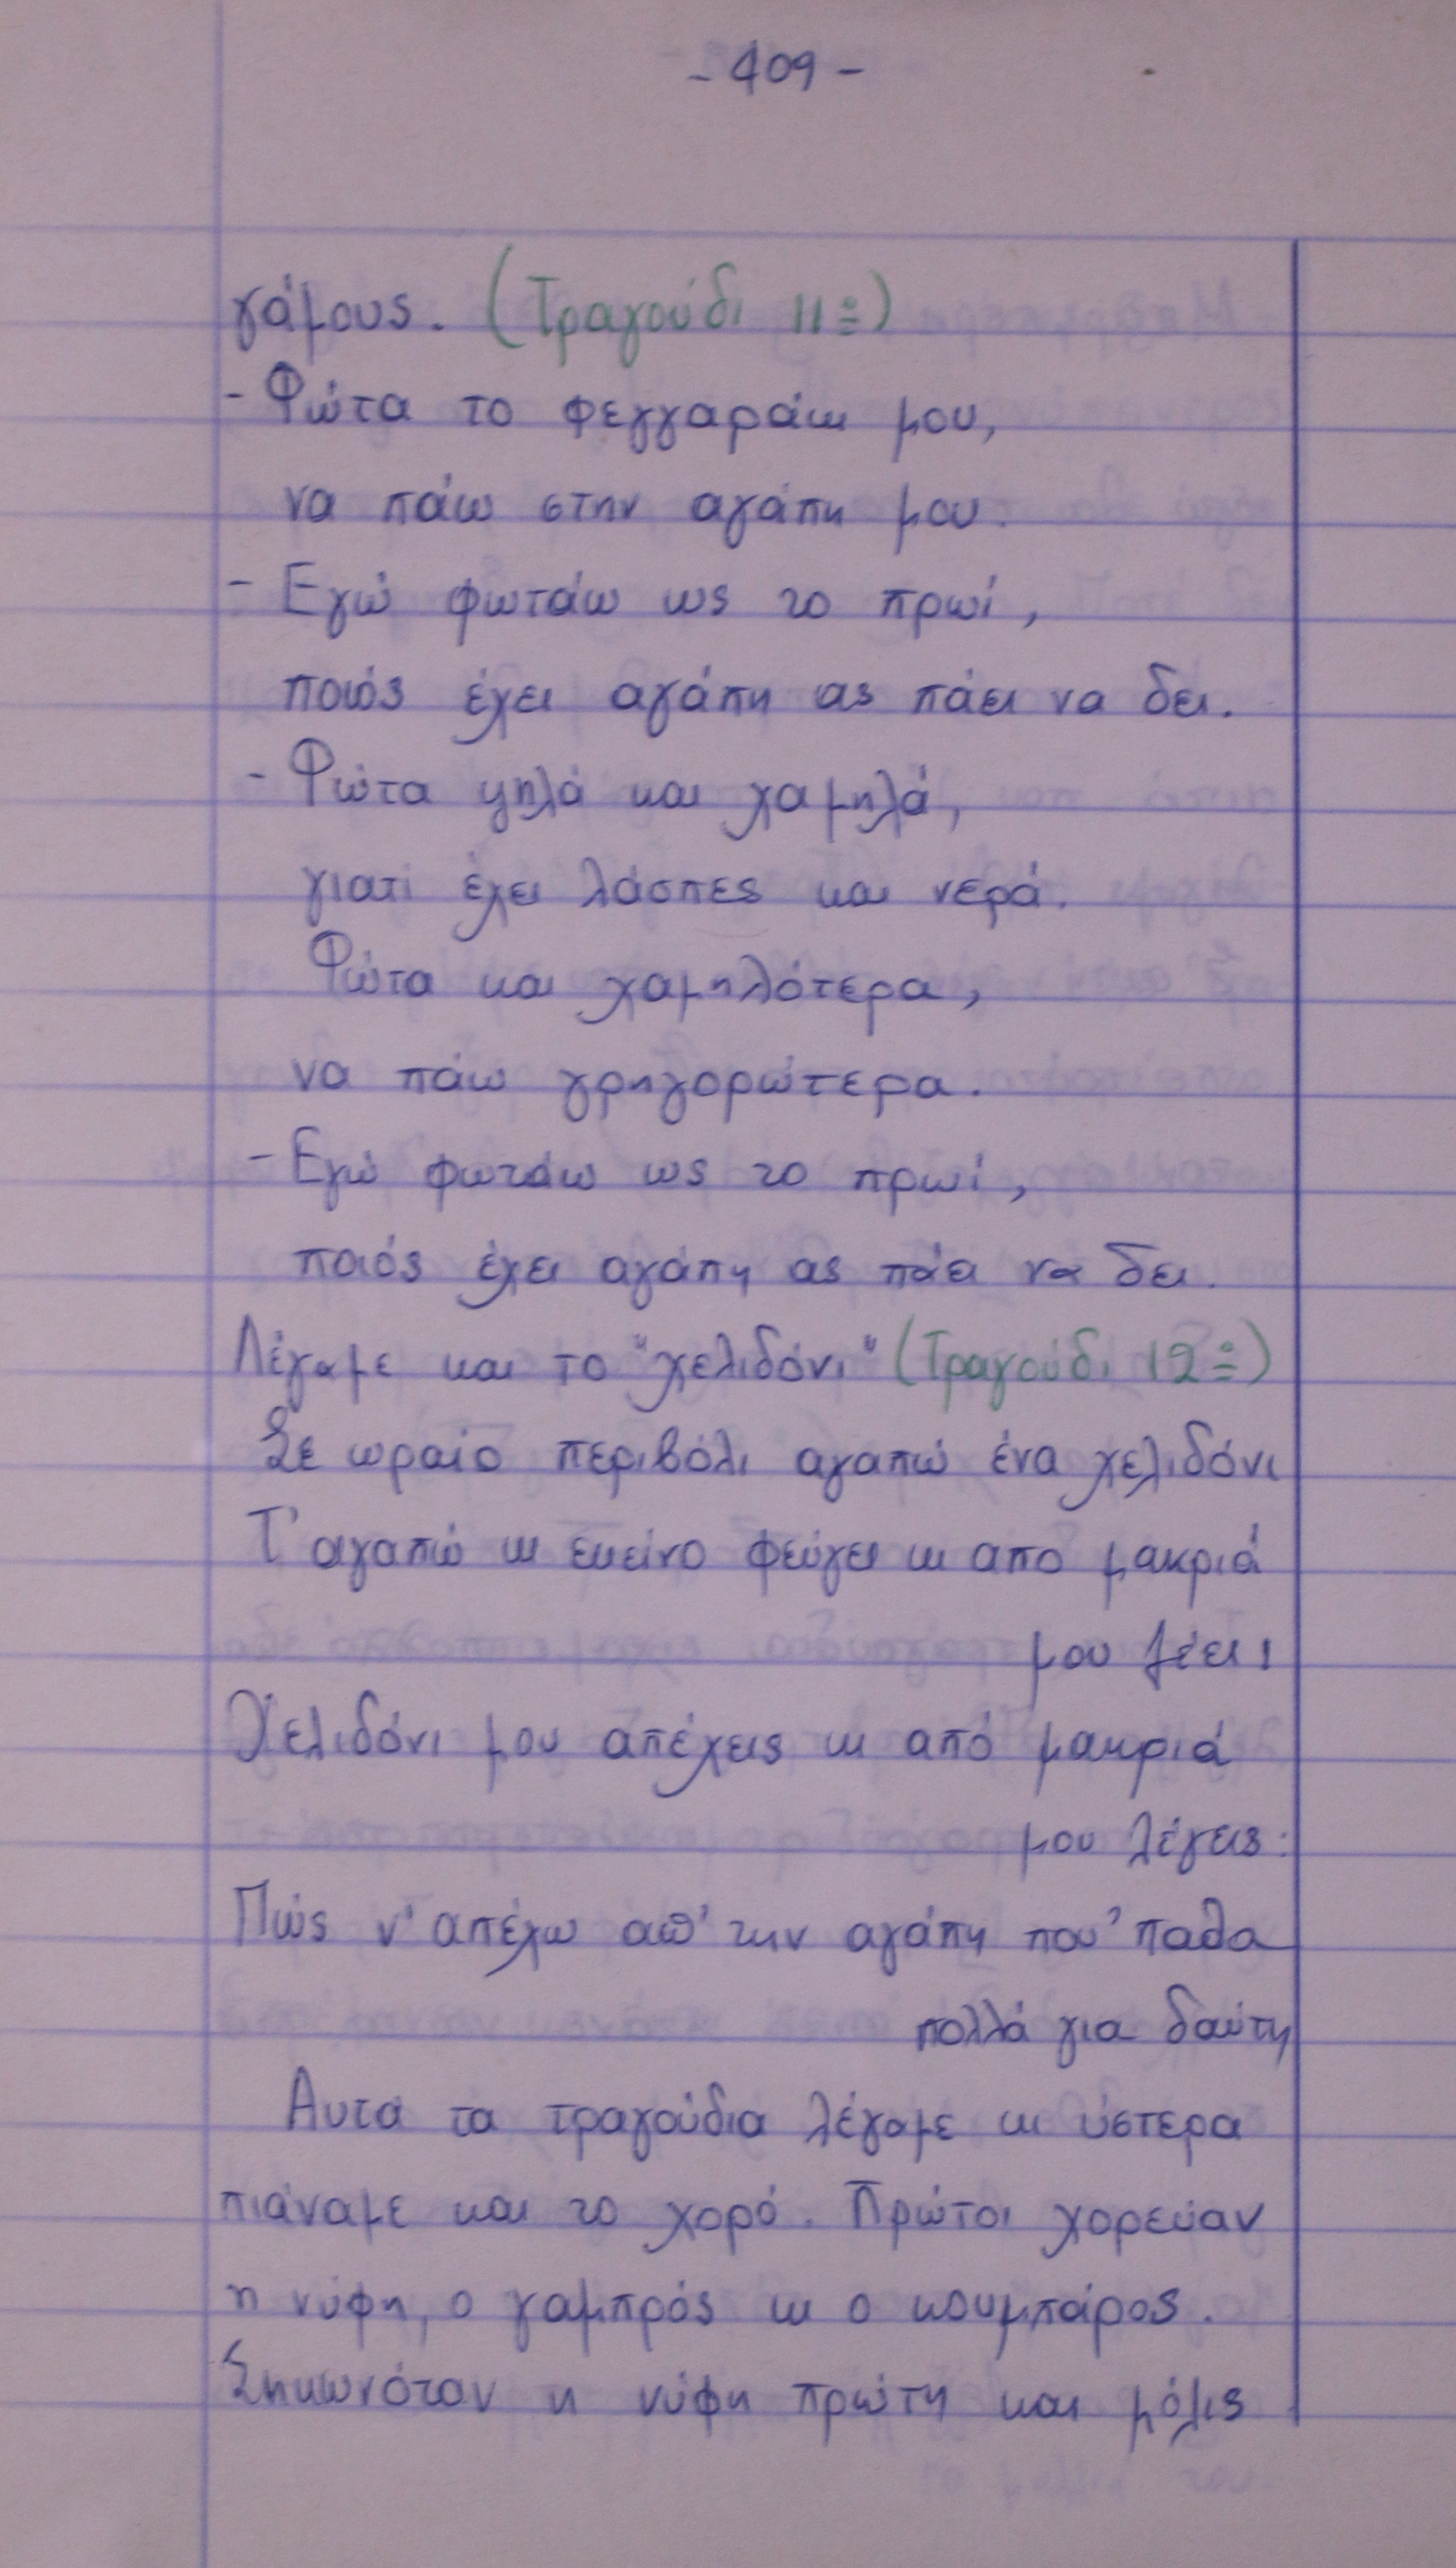 - 409 -
γάμους. (Τραγούδι 11º)
- Φώτα το φεγγαράκι μου,
να πάω στην αγάπη μου.
- Εγώ φωτάω ως το πρωί,
ποιός έχει αγάπη ας πάει να δει.
- Φώτα ψηλά και χαμηλά,
γιατί έχει λάσπες και νερά.
Φώτα και χαμηλότερα,
να πάω γρηγορώτερα.
- Εγώ φωτάω ως το πρωί,
ποιός έχει αγάπη ας πάει να δει.
Λέγαμε και το "χελιδόνι" (Τραγούδι 12º)
Σε ωραίο περιβόλι αγαπώ ένα χελιδόνι
Τ' αγαπώ κι εκείνο φεύγει κι απο μακριά
μου λέει!
Χελιδόνι μου απέχεις κι από μακριά
μου λέγεις:
Πώς ν' απέχω απ' την αγάπη που' παθα
πολλά για δαύτη
Αυτά τα τραγούδια λέγαμε κι ύστερα
πιάναμε και το χορό. Πρώτοι χορεύαν
η νύφη, ο γαμπρός κι ο κουμπάρος.
Σηκωνόταν η νύφη πρώτη και μόλις